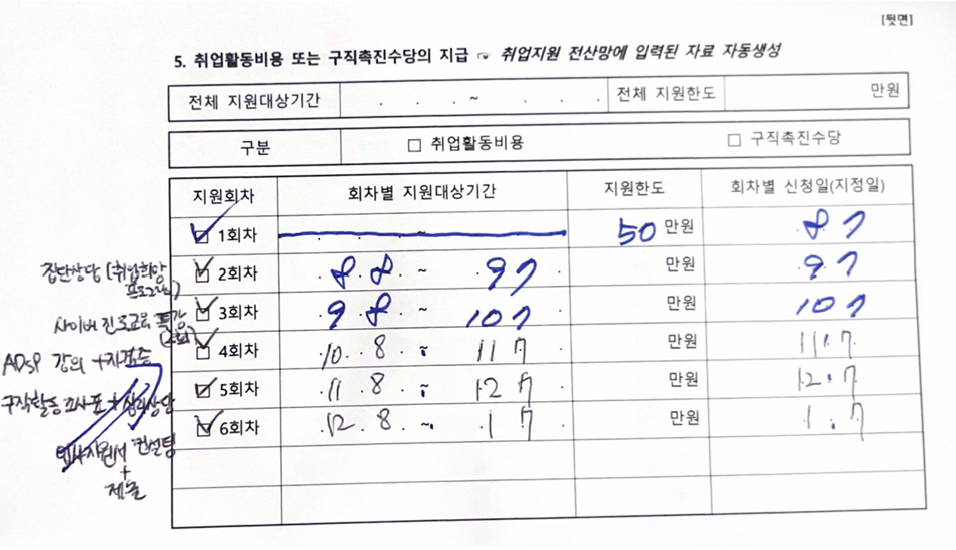 [뒷면]
5. 취업활동비용 또는 구직촉진수당의 지급 ☞ 취업지원 전산망에 입력된 자료 자동생성
전체 지원대상기간 . . . ~ . . . 전체 지원한도 만원
구분 □ 취업활동비용 □ 구직촉진수당
지원회차 회차별 지원대상기간 지원한도 회차별 신청일(지정일)
☑ 1회차 . . ~ . . 50 만원 8.7
집단상담 (취업희망
프로그램)
☑ 2회차 8. 8. ~ 9 7 . 만원 9.7
사이버 진로교육 특강
(2회)
☑ 3회차 9. 8. ~ 10 7 . 만원 10 7
☑ 4회차 10. 8. ~ 11 7 . 만원 11.7
ADsP 강의 +
☑ 5회차 11. 8. ~ 12 7 . 만원 12.7
구직활동 조사표 + 심리상담
☑ 6회차 12. 8. ~ 1 7 . 만원 1.7
입사지원서 컨설팅
+
제출